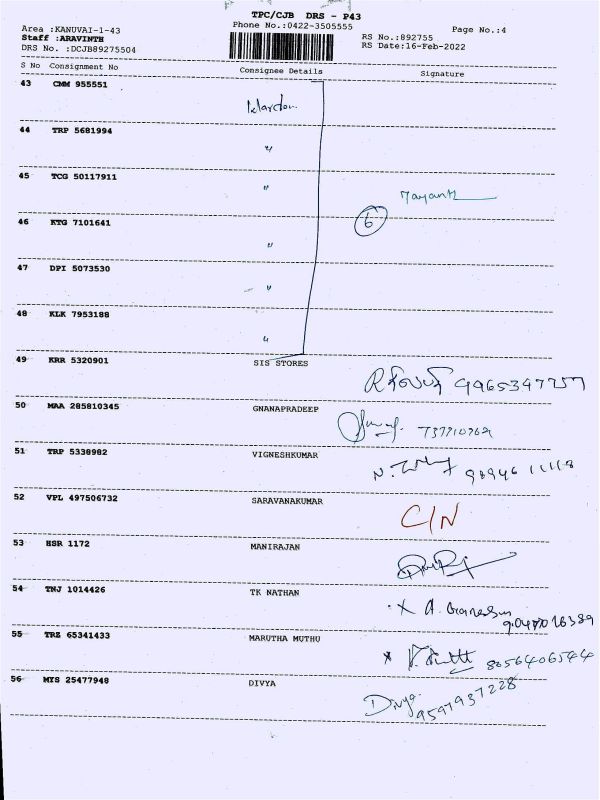 TPC/CJB DRS - P43
Area :KANUVAI-1-43 Phone No.:0422-3505555 Page No.:4
Staff :ARAVINTH RS No.:892755
DRS No. :DCJB89275504 RS Date:16-Feb-2022
S No Consignment No Consignee Details Signature
43 CMM 955551
44 TRP 5681994 "
45 TCG 50117911 "
6
46 KTG 7101641 "
47 DPI 5073530 "
48 KLK 7953188 "
49 KRR 5320901 SIS STORES
50 MAA 285810345 GNANAPRADEEP
51 TRP 5338982 VIGNESHKUMAR
52 VPL 497506732 SARAVANAKUMAR C/N
53 HSR 1172 MANIRAJAN
54 TNJ 1014426 TK NATHAN
55 TRZ 65341433 MARUTHA MUTHU 8056406544
56 MYS 25477948 DIVYA Divya 9597937228